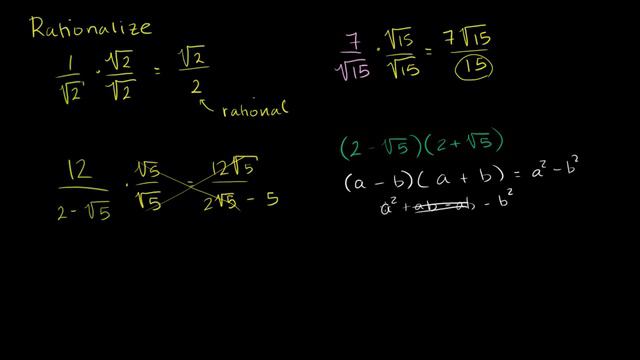 Rationalize
1/√2 · √2/√2 = √2/2
rational
7/√15 · √15/√15 = 7√15/15
12/(2-√5) · √5/√5 = 12√5/(2√5 - 5)
(2 - √5)(2 + √5)
(a - b)(a + b) = a² - b²
a² + ab - ab - b²